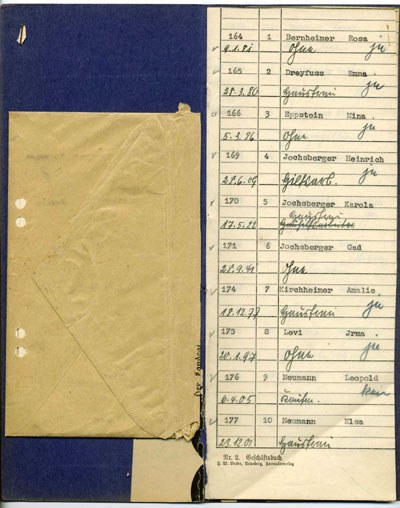 164 1 Bernheimer Rosa
9.1.81 Ohne ja
165 2 Dreyfuss Emma
28.3.80 Hausfrau ja
166 3 Eppstein Mina
5.3.96 Ohne ja
169 4 Jochsberger Heinrich
Hilfsarb. ja
170 5 Jochsberger Karola
17.5.22 Hausfrau
171 6 Jochsberger Gad
28.9.41 Ohne
174 7 Kirchheimer Amalie
18.12.79 Hausfrau ja
175 8 Levi Jrma
20.1.97 Ohne ja
176 9 Neumann Leopold
6.4.05
177 10 Neumann Elsa
23.12.01 Hausfrau
Nr. 2. Geschäftsbuch